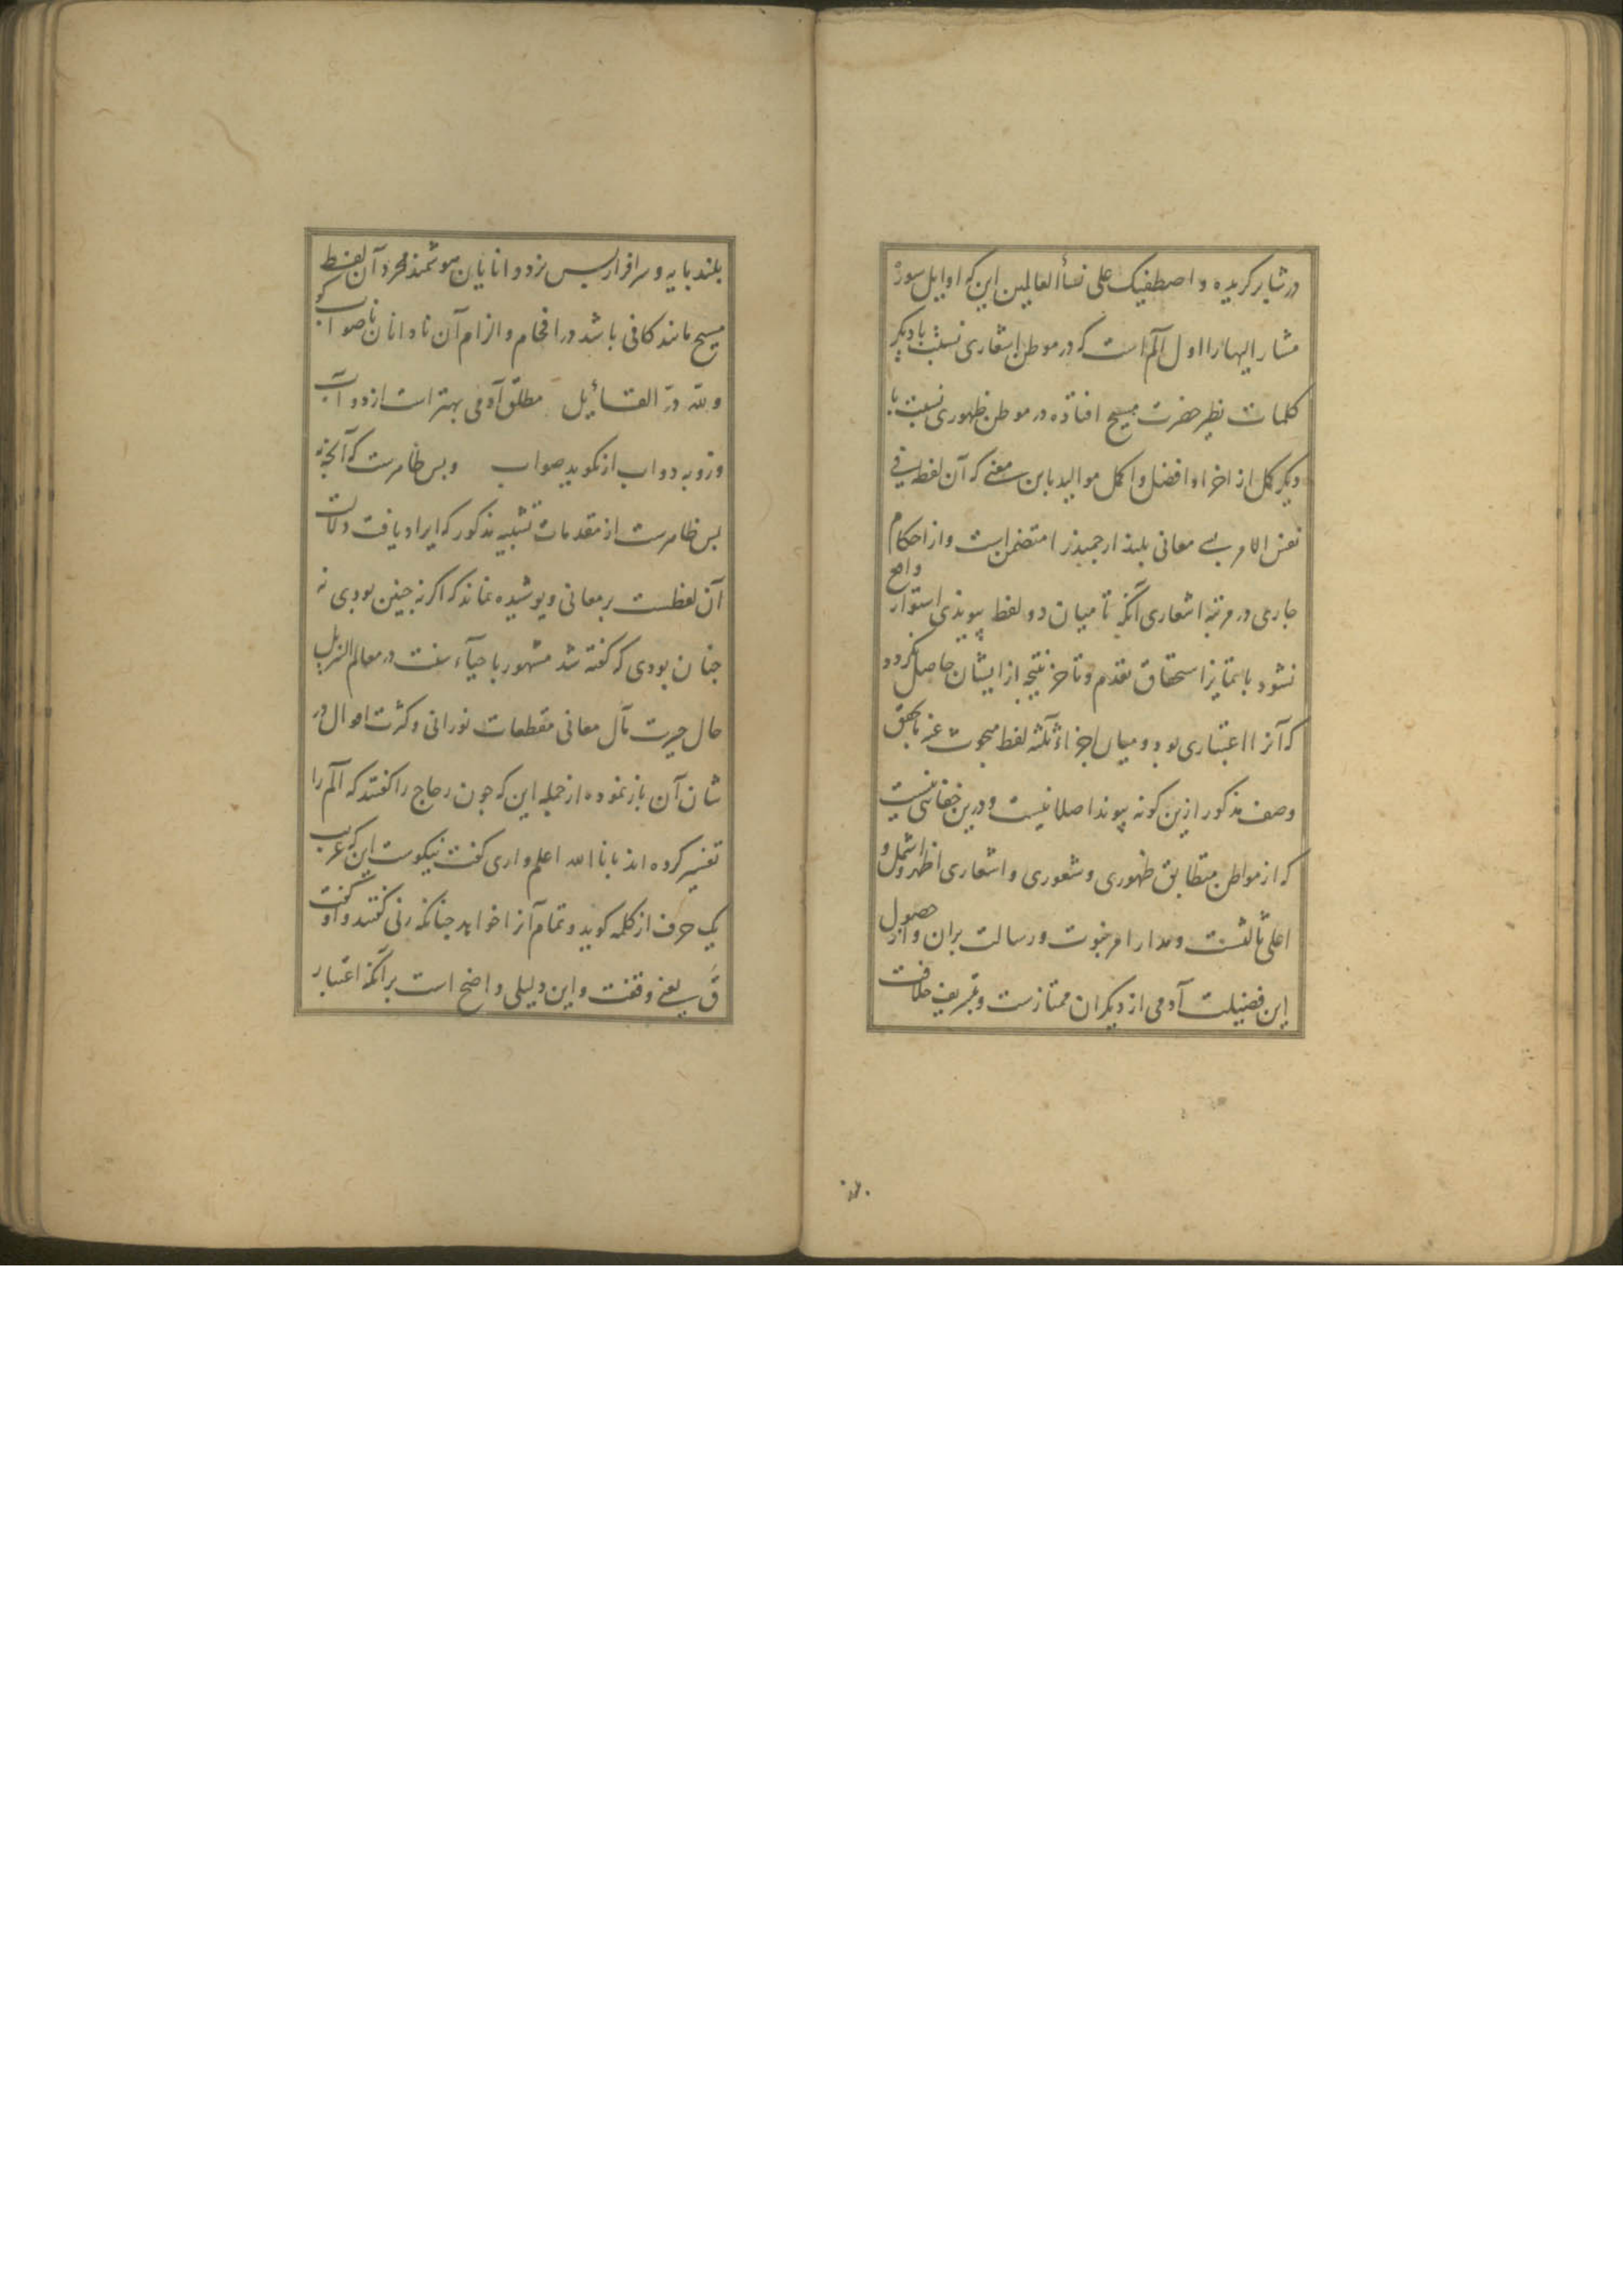 در شایر کریده و اصطفیک علی نسأ العالمین این که اوایل سورهٔ
مشار الیها را اول الٓم است که در موطن اشعاری نسبت با دیگر
کلمات نظیر حضرت مسیح افتاده در موطن ظهوری نسبت با
دیگر کمل از اخراء افضل و اکمل موالید باین معنی که آن لفظ فی
نفس الامر بی معانی بلند ارجمندرا متضمن است و از احکام
جاری در مرتبه اشعاری آنکه تا میان دو لفظ پیوندی استوار واقع
نشود با تمایز استحقاق تقدم و تأخر نتیجه از ایشان حاصل نکردد
که آنرا اعتباری بود و میان اجزاء ثلثه لفظ مبحوث عنه با تحقق
وصف مذکور ازین کونه پیوند اصلا نیست و درین خفائی نیست
که از مواطن متطابق ظهوری و شعوری و اشعاری اظهر و اشمل و
اعلی ثالثست و مدار امر نبوت و رسالت بران و از حصول
این فضیلت آدمی از دیگران ممتازست و بتشریف خلافت
بلند پایه و سرافراز پس نزد دانایان هوشمند مجرد آن لفظ که
مسیح مانند کافی باشد در افحام و الزام آن نادانان ناصواب
ولله درّ القائیل مطلق آدمی بهتر است از دوآب
وزو به دواب ار نکوید صواب وبس ظاهرست که آنچه
بس ظاهرست از مقدمات تشبیه مذکور که ایراد یافت دلالت
آن لفظست بر معانی و پوشیده نماند که اکر نه چنین بودی نه
چنان بودی که کفته شد مشهور باحیآء سنت در معالم التنزیل
حال حیرت مآل معانی مقطعات نورانی و کثرت اقوال در
شان آن باز نموده از جمله این که چون زجاج را کفتند که الٓم را
تفسیر کرده اند بانا الله اعلم و اری کفت نیکوست این که عرب
یک حرف از کلمه کوید و تمام آنرا خواهد چنانکه زنی کفتند و او کفت
قَ یعنی وقفت و این دلیلی واضح است بر آنکه اعتبار